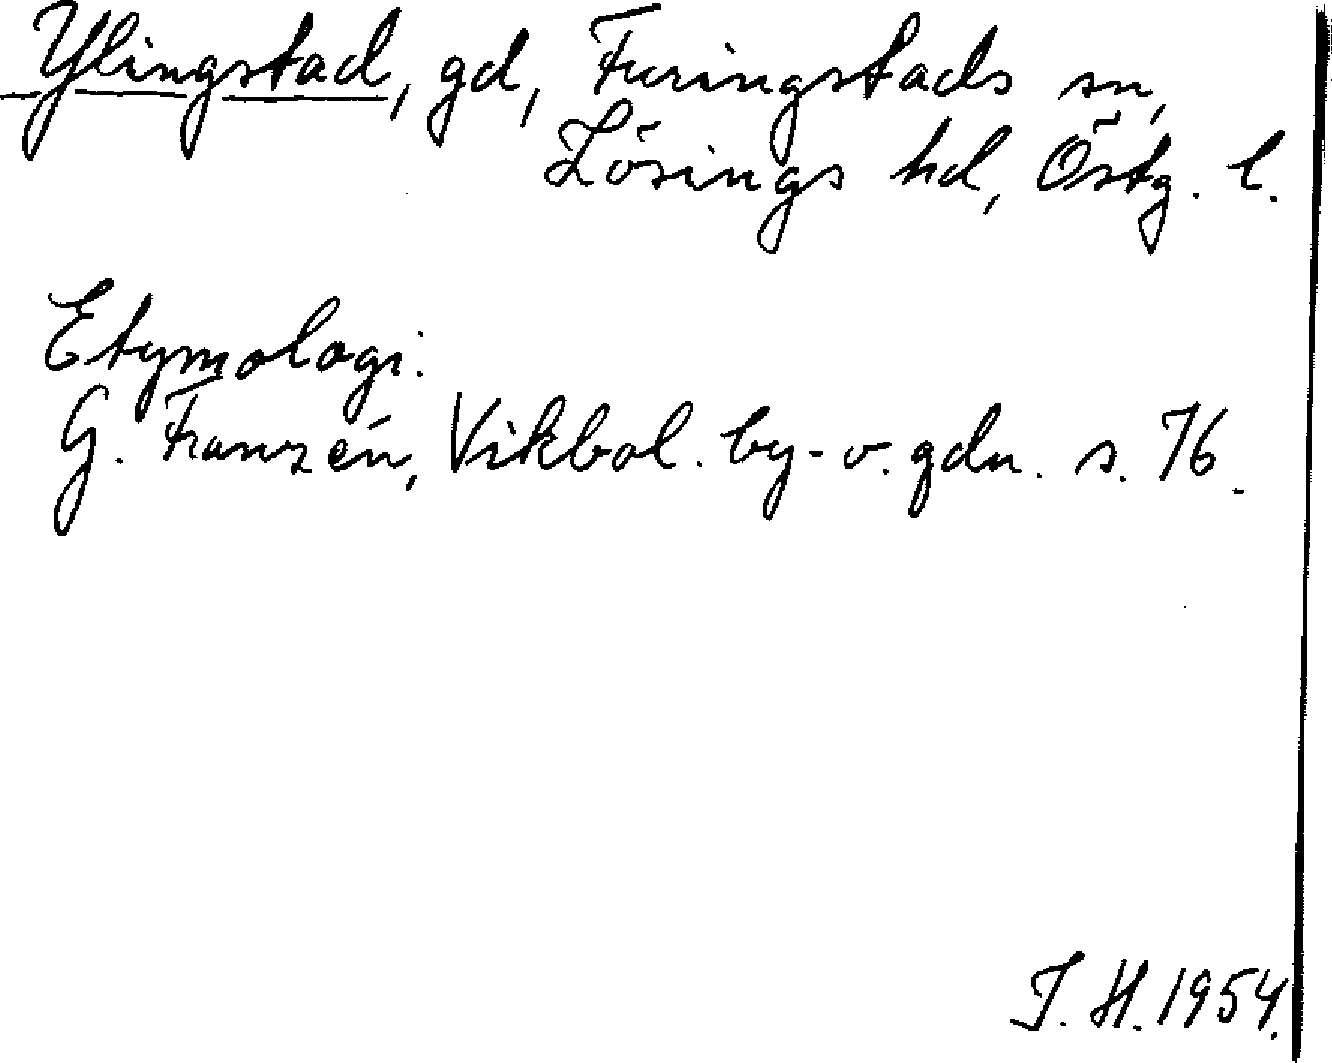 Ylingstad, gd, Furingstads sn,
Lösings hd, Östg. l.
Etymologi:
G. Franzén, Vikbol. by- o. gdn. s. 76.
I. H. 1954.